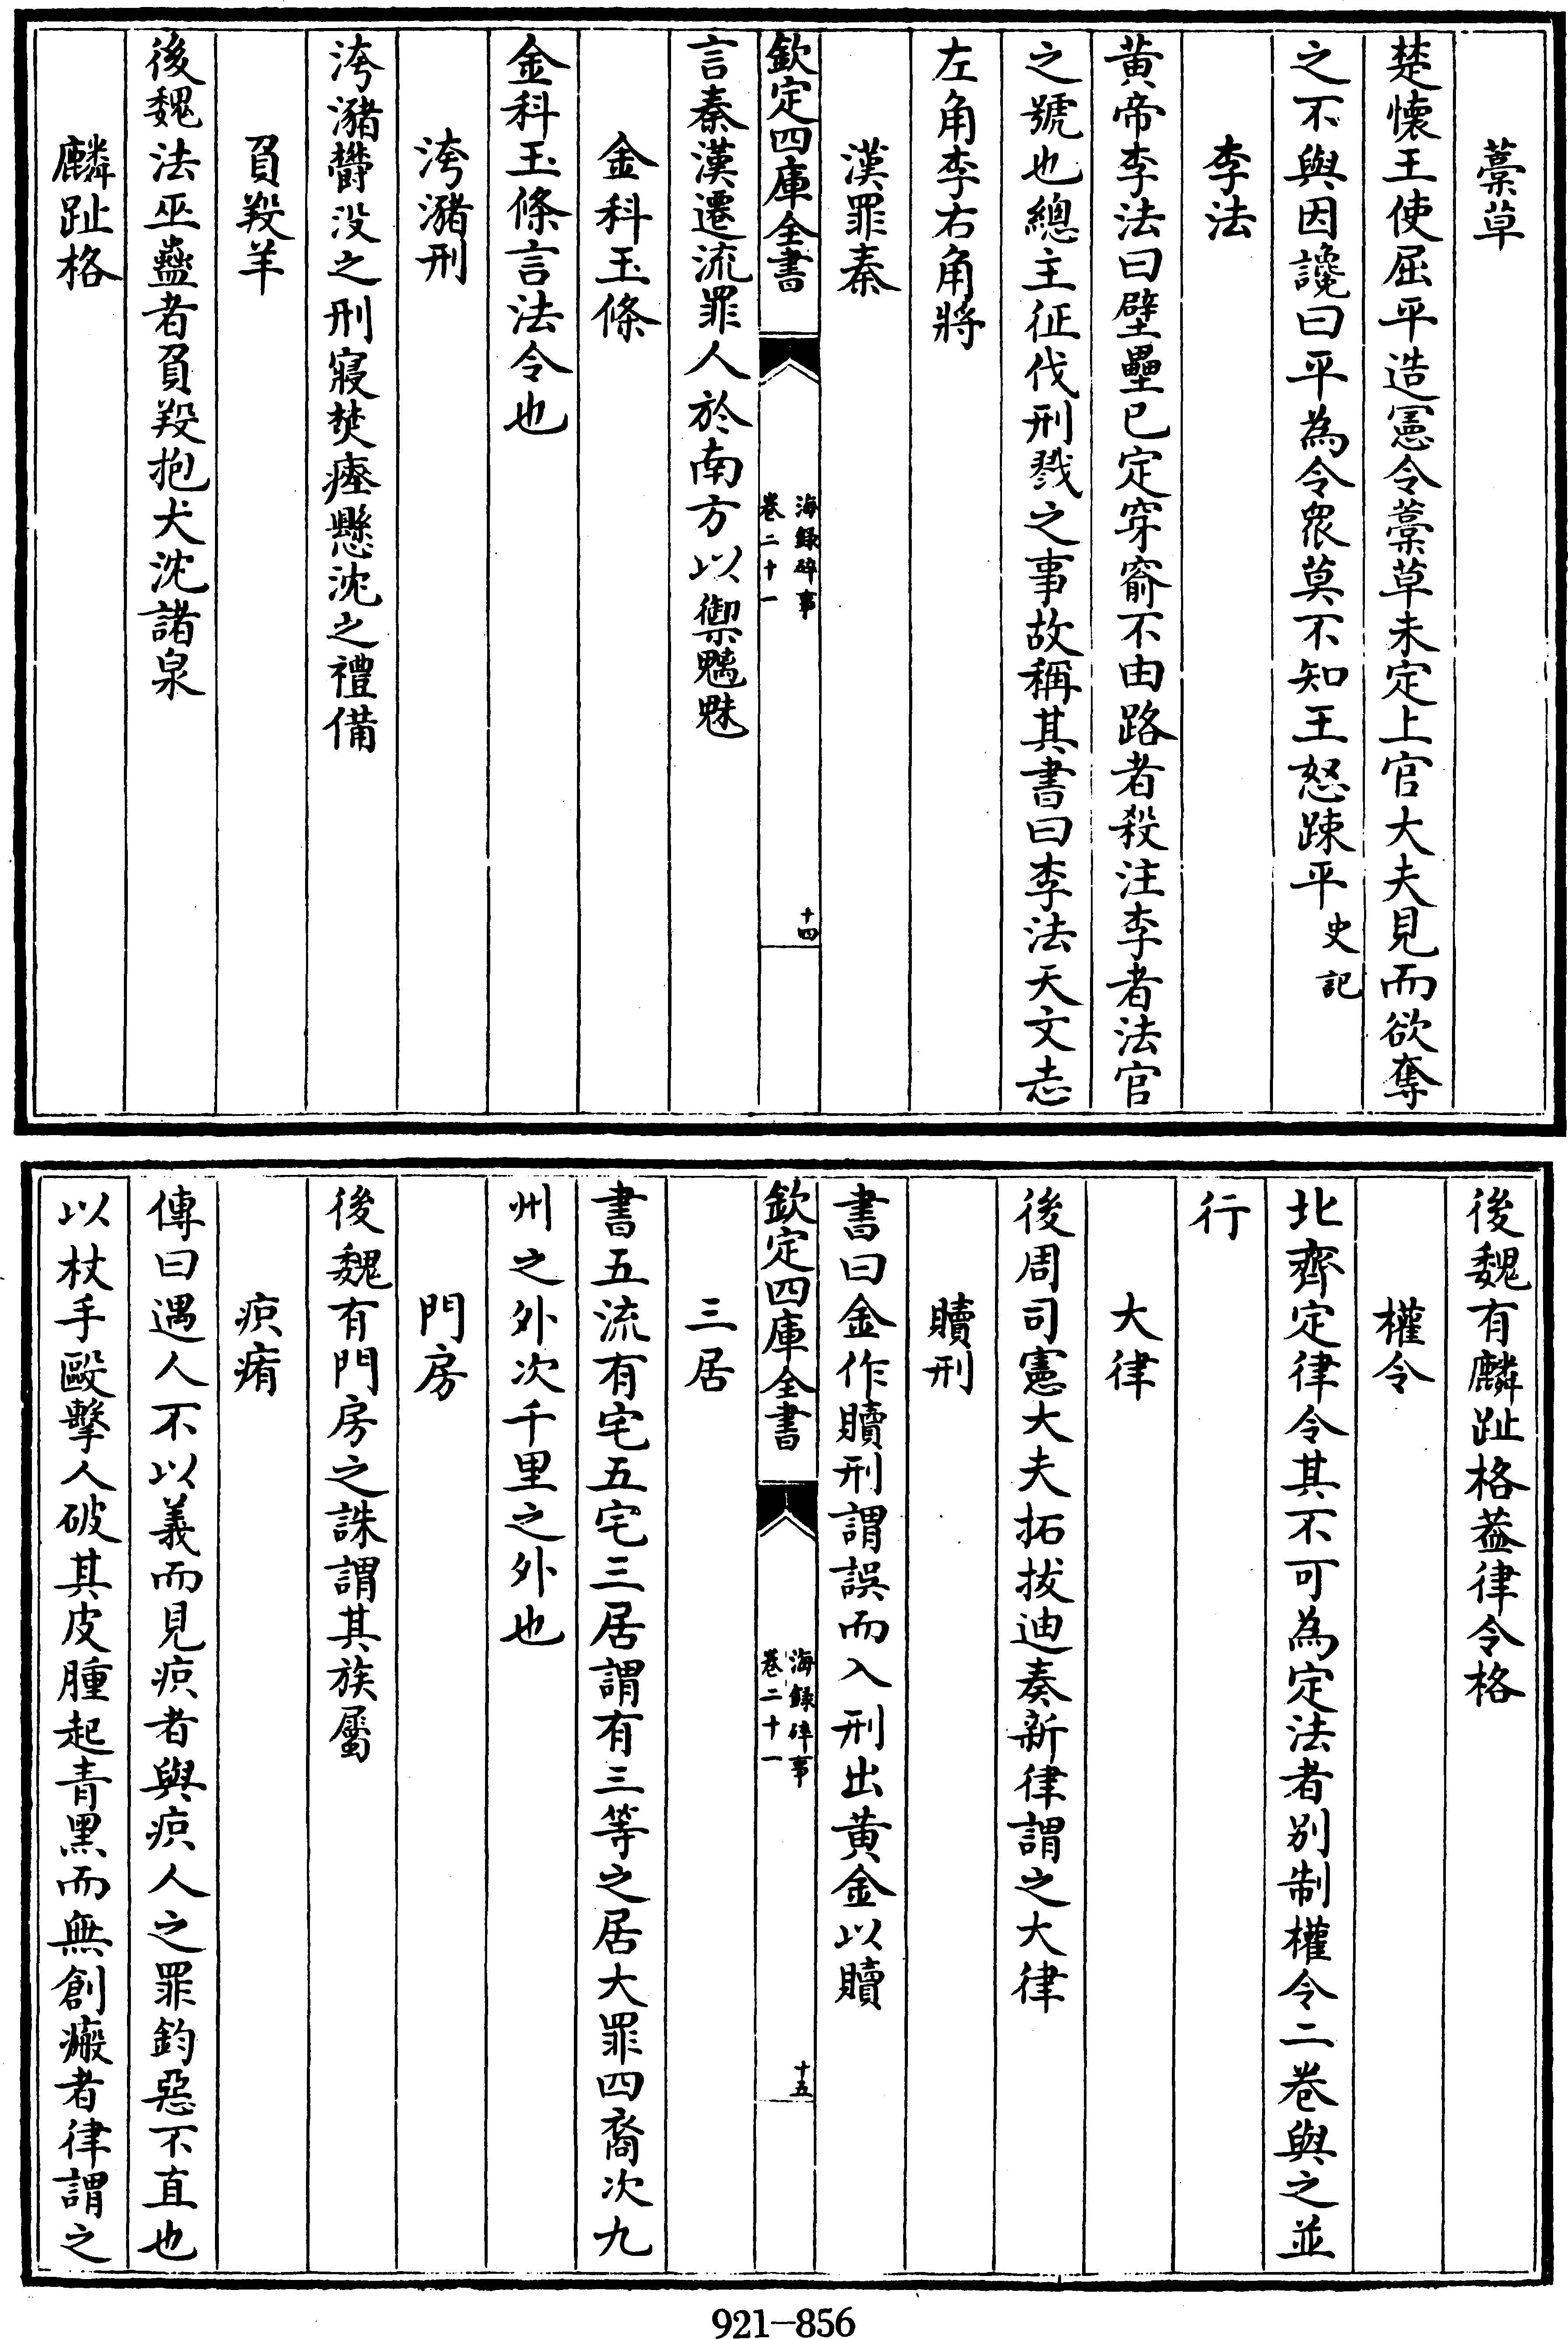 藁草
楚懷王使屈平造憲令藁草未定上官大夫見而欲奪
之不與因讒曰平為令衆莫不知王怒踈平史記
李法
黄帝李法曰壁壘已定穿窬不由路者殺注李者法官
之號也總主征伐刑戮之事故稱其書曰李法天文志
左角李右角將
漢罪秦
欽定四庫全書
海録碎事
卷二十一
十四
言秦漢遷流罪人於南方以禦魑魅
金科玉條
金科玉條言法令也
洿瀦刑
洿瀦欝没之刑寢焚瘞懸沈之禮備
負羖羊
後魏法巫蠱者負羖抱犬沈諸泉
麟趾格
後魏有麟趾格葢律令格
權令
北齊定律令其不可為定法者别制權令二卷與之並
行
大律
後周司憲大夫拓拔迪奏新律謂之大律
贖刑
書曰金作贖刑謂誤而入刑出黄金以贖
欽定四庫全書
海録碎事
卷二十一
十五
三居
書五流有宅五宅三居謂有三等之居大罪四裔次九
州之外次千里之外也
門房
後魏有門房之誅謂其族屬
疻痏
傳曰遇人不以義而見疻者與疻人之罪鈞惡不直也
以杖手毆擊人破其皮腫起青黑而無創瘢者律謂之
921-856